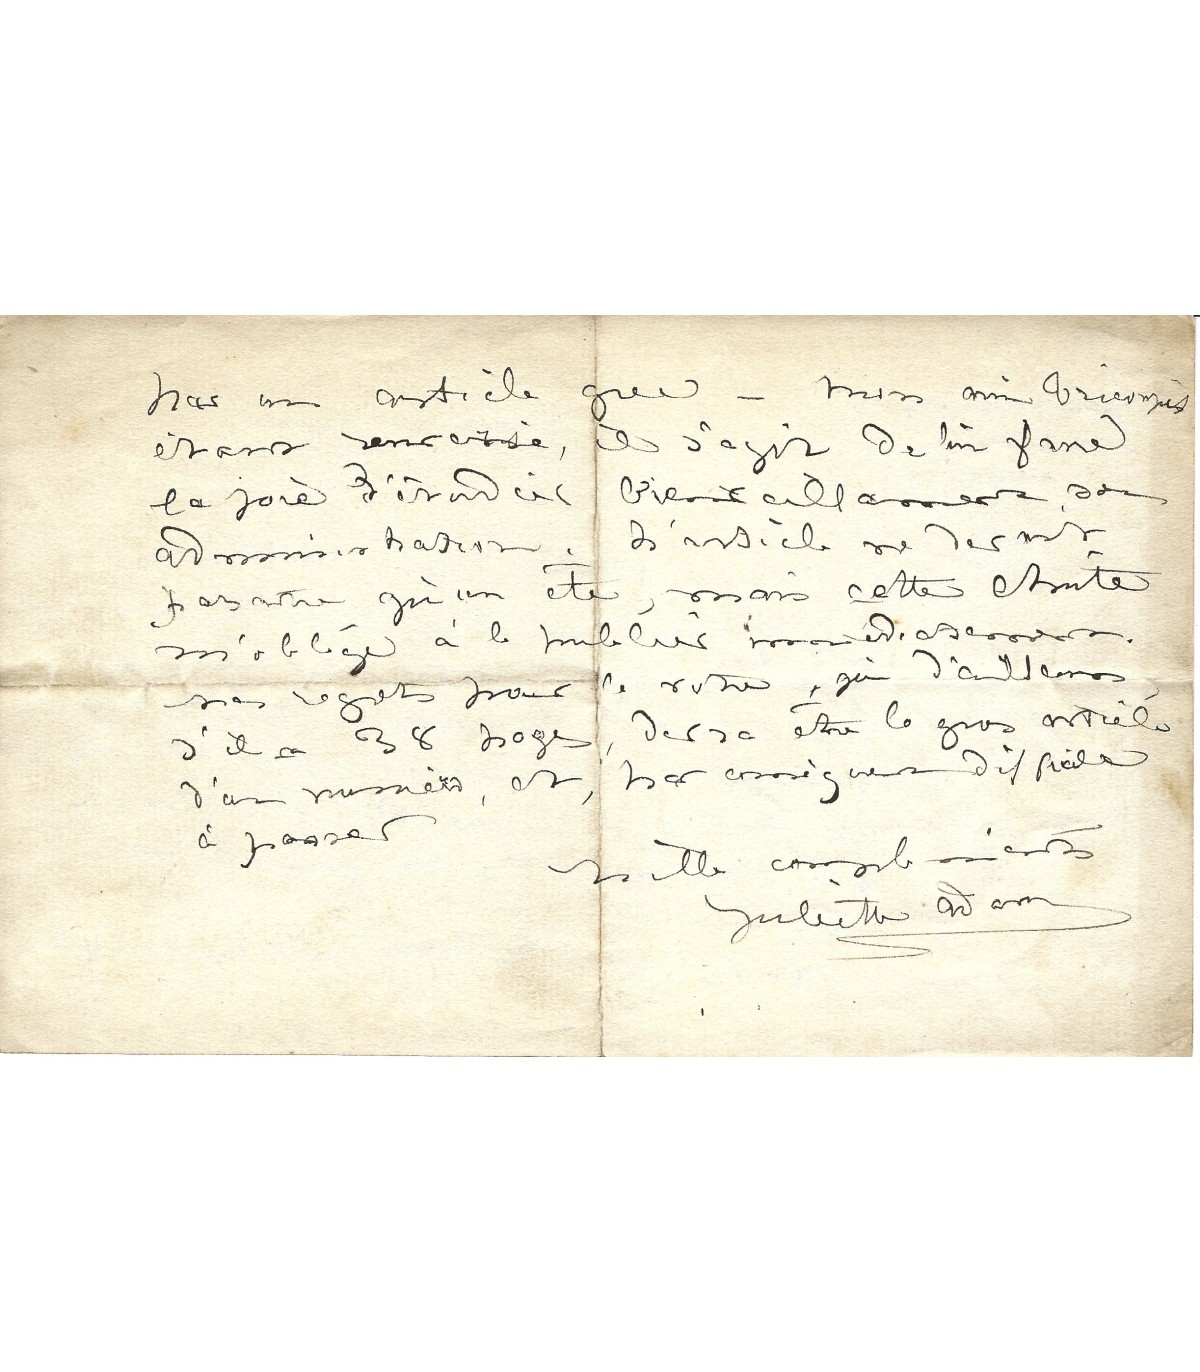 par un article grec — mon ami Tricoupis
étant renversé, il s'agit de lui faire
la joie d'étudier bienveillamment son
administration. L'article ne devait
paraitre qu'en été, mais cette chute
m'oblige à le publier immédiatement.
mes regrets pour le votre, qui d'ailleurs,
s'il a 38 pages, devra être le gros article
d'un numéro, et, par conséquent difficile
à passer
Mille compliments
Juliette Adam